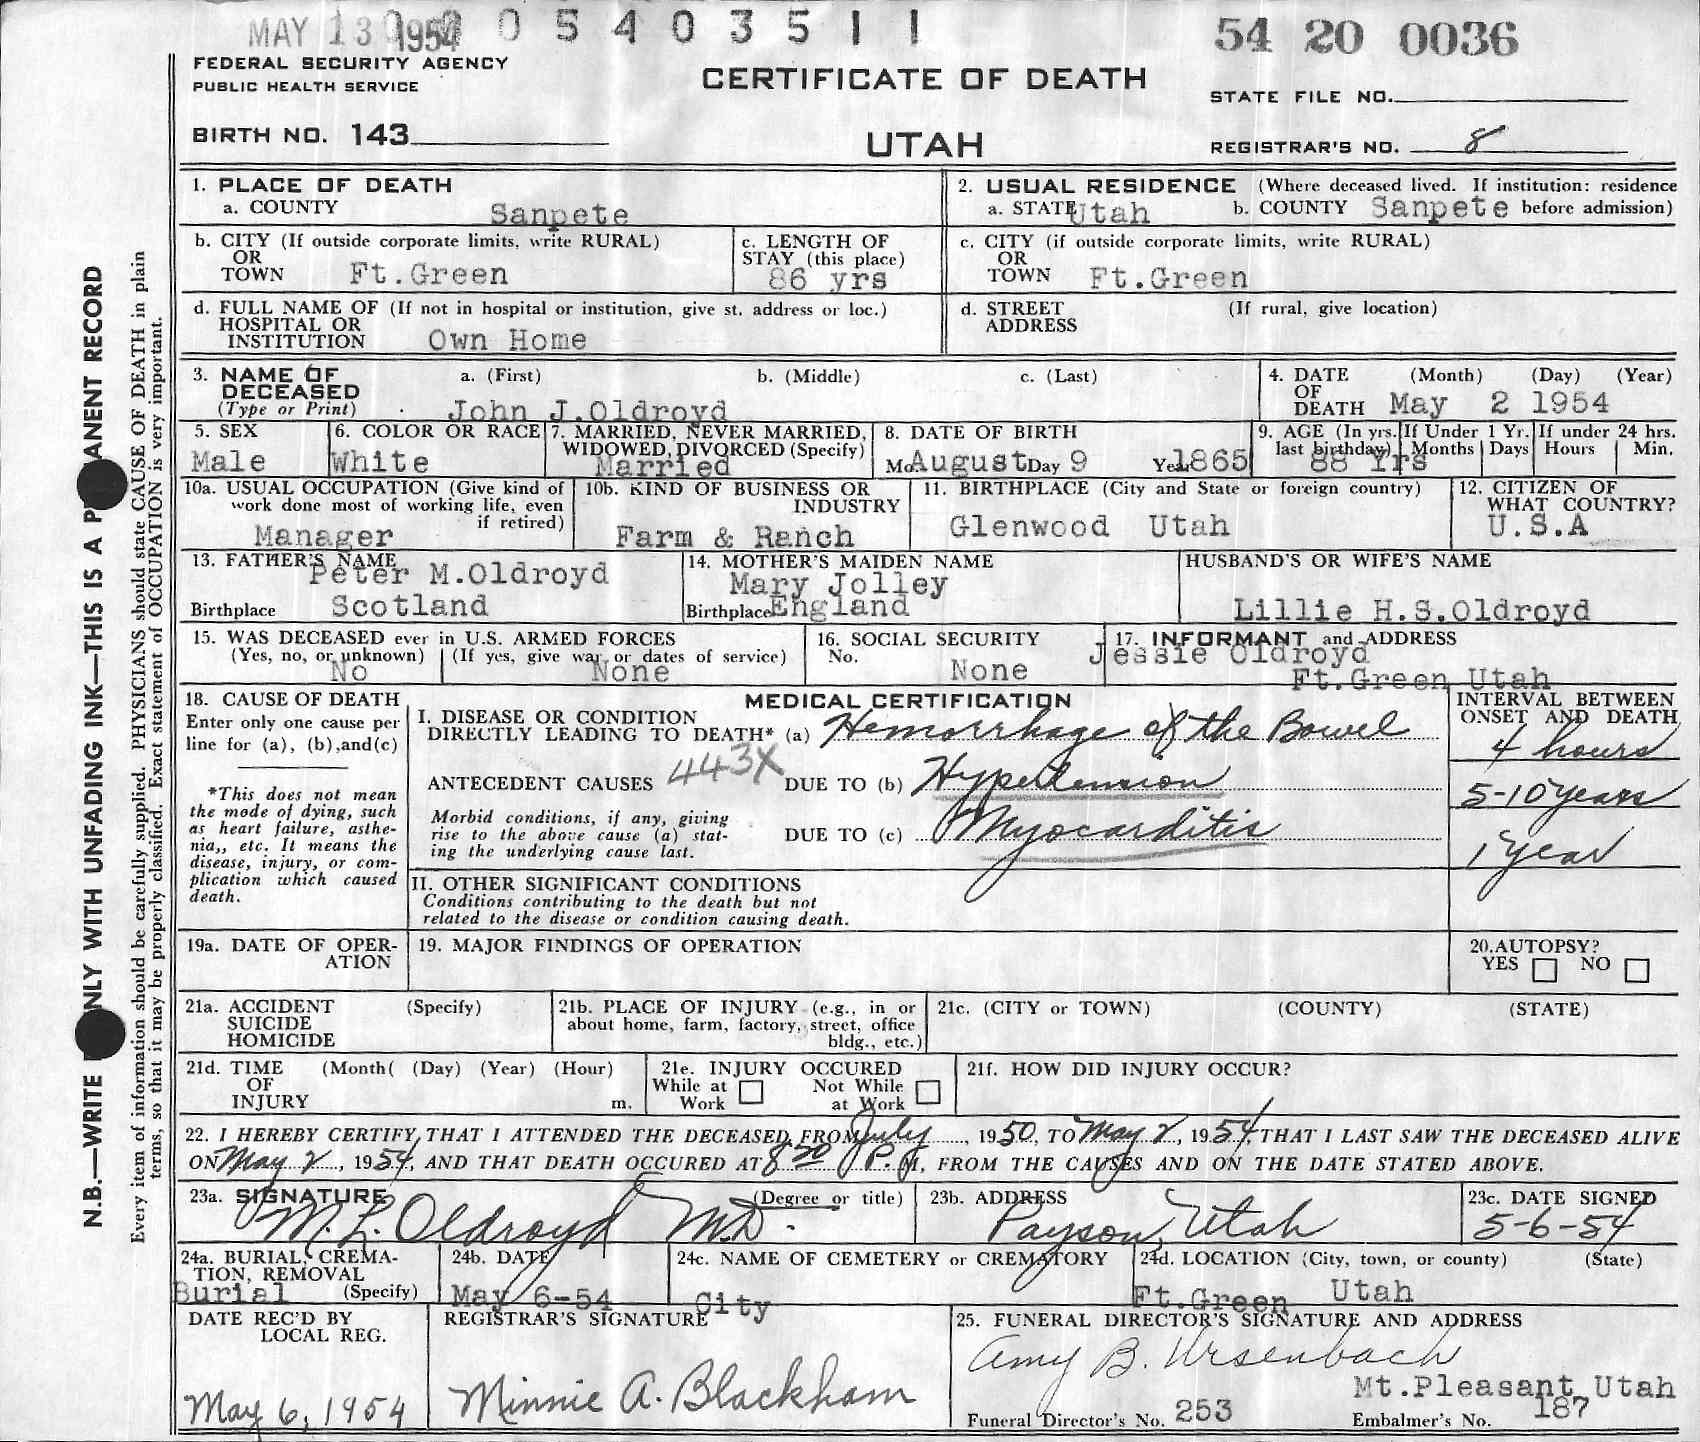 MAY 13 1954 0 5 4 0 3 5 1 1
54 20 0036
FEDERAL SECURITY AGENCY
PUBLIC HEALTH SERVICE
CERTIFICATE OF DEATH
STATE FILE NO.
BIRTH NO. 143
UTAH
REGISTRAR'S NO. 8
N.B.—WRITE ONLY WITH UNFADING INK—THIS IS A PERMANENT RECORD
Every item of information should be carefully supplied. PHYSICIANS should state CAUSE OF DEATH in plain
terms, so that it may be properly classified. Exact statement of OCCUPATION is very important.
1. PLACE OF DEATH
a. COUNTY Sanpete
2. USUAL RESIDENCE (Where deceased lived. If institution: residence
a. STATE Utah b. COUNTY Sanpete before admission)
b. CITY (If outside corporate limits, write RURAL)
OR
TOWN Ft.Green
c. LENGTH OF
STAY (this place)
86 yrs
c. CITY (if outside corporate limits, write RURAL)
OR
TOWN Ft.Green
d. FULL NAME OF (If not in hospital or institution, give st. address or loc.)
HOSPITAL OR
INSTITUTION Own Home
d. STREET (If rural, give location)
ADDRESS
3. NAME OF a. (First) b. (Middle) c. (Last)
DECEASED
(Type or Print) John J.Oldroyd
4. DATE (Month) (Day) (Year)
OF
DEATH May 2 1954
5. SEX
Male
6. COLOR OR RACE
White
7. MARRIED, NEVER MARRIED,
WIDOWED, DIVORCED (Specify)
Married
8. DATE OF BIRTH
Mo August Day 9 Year 1865
9. AGE (In yrs. If Under 1 Yr. If under 24 hrs.
last birthday) Months Days Hours Min.
88 Yrs
10a. USUAL OCCUPATION (Give kind of
work done most of working life, even
if retired)
Manager
10b. KIND OF BUSINESS OR
INDUSTRY
Farm & Ranch
11. BIRTHPLACE (City and State or foreign country)
Glenwood Utah
12. CITIZEN OF
WHAT COUNTRY?
U.S.A
13. FATHER'S NAME
Peter M.Oldroyd
Birthplace Scotland
14. MOTHER'S MAIDEN NAME
Mary Jolley
Birthplace England
HUSBAND'S OR WIFE'S NAME
Lillie H.S.Oldroyd
15. WAS DECEASED ever in U.S. ARMED FORCES
(Yes, no, or unknown) (If yes, give war or dates of service)
No None
16. SOCIAL SECURITY
No.
None
17. INFORMANT and ADDRESS
Jessie Oldroyd
Ft.Green Utah
18. CAUSE OF DEATH
Enter only one cause per
line for (a), (b),and(c)
*This does not mean
the mode of dying, such
as heart failure, asthe-
nia,, etc. It means the
disease, injury, or com-
plication which caused
death.
MEDICAL CERTIFICATION
INTERVAL BETWEEN
ONSET AND DEATH
I. DISEASE OR CONDITION
DIRECTLY LEADING TO DEATH* (a) Hemorrhage of the Bowel 4 hours
ANTECEDENT CAUSES 443X DUE TO (b) Hypertension 5-10 years
Morbid conditions, if any, giving
rise to the above cause (a) stat-
ing the underlying cause last.
DUE TO (c) Myocarditis 1 year
II. OTHER SIGNIFICANT CONDITIONS
Conditions contributing to the death but not
related to the disease or condition causing death.
19a. DATE OF OPER-
ATION
19. MAJOR FINDINGS OF OPERATION
20.AUTOPSY?
YES NO
21a. ACCIDENT (Specify)
SUICIDE
HOMICIDE
21b. PLACE OF INJURY (e.g., in or
about home, farm, factory, street, office
bldg., etc.)
21c. (CITY or TOWN) (COUNTY) (STATE)
21d. TIME (Month( (Day) (Year) (Hour)
OF
INJURY m.
21e. INJURY OCCURED
While at Not While
Work at Work
21f. HOW DID INJURY OCCUR?
22. I HEREBY CERTIFY THAT I ATTENDED THE DECEASED FROM July, 1950, TO May 2, 1954, THAT I LAST SAW THE DECEASED ALIVE
ON May 2, 1954, AND THAT DEATH OCCURED AT 8:20 P.M, FROM THE CAUSES AND ON THE DATE STATED ABOVE.
23a. SIGNATURE (Degree or title)
M. L. Oldroyd M.D.
23b. ADDRESS
Payson, Utah
23c. DATE SIGNED
5-6-54
24a. BURIAL, CREMA-
TION, REMOVAL
Burial (Specify)
24b. DATE
May 6-54
24c. NAME OF CEMETERY or CREMATORY
City
24d. LOCATION (City, town, or county) (State)
Ft.Green Utah
DATE REC'D BY
LOCAL REG.
May 6, 1954
REGISTRAR'S SIGNATURE
Minnie A. Blackham
25. FUNERAL DIRECTOR'S SIGNATURE AND ADDRESS
Amy B. Ursenbach
Mt.Pleasant Utah
Funeral Director's No. 253 Embalmer's No. 187